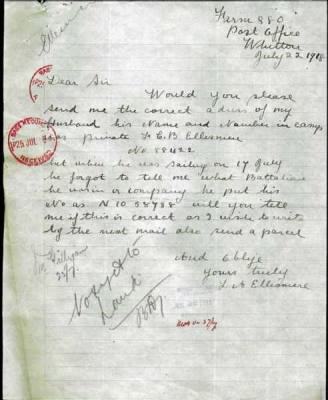 Farm 880
Post Office
Whitton
July 22 1918
Dear Sir
Would you please
send me the correct adress of my
husband his Name and Number in camp
was private F C B Ellesmere
No 58422
but when he was sailing on 17 July
he forgot to tell me what Battalion
he was in or company he put his
No as N 10 58788 will you tell
me if this is correct as I wish to write
by the next mail also send a parcel
And Oblige
Yours truely
L A Ellesmere
25 JUL
No
to
hand